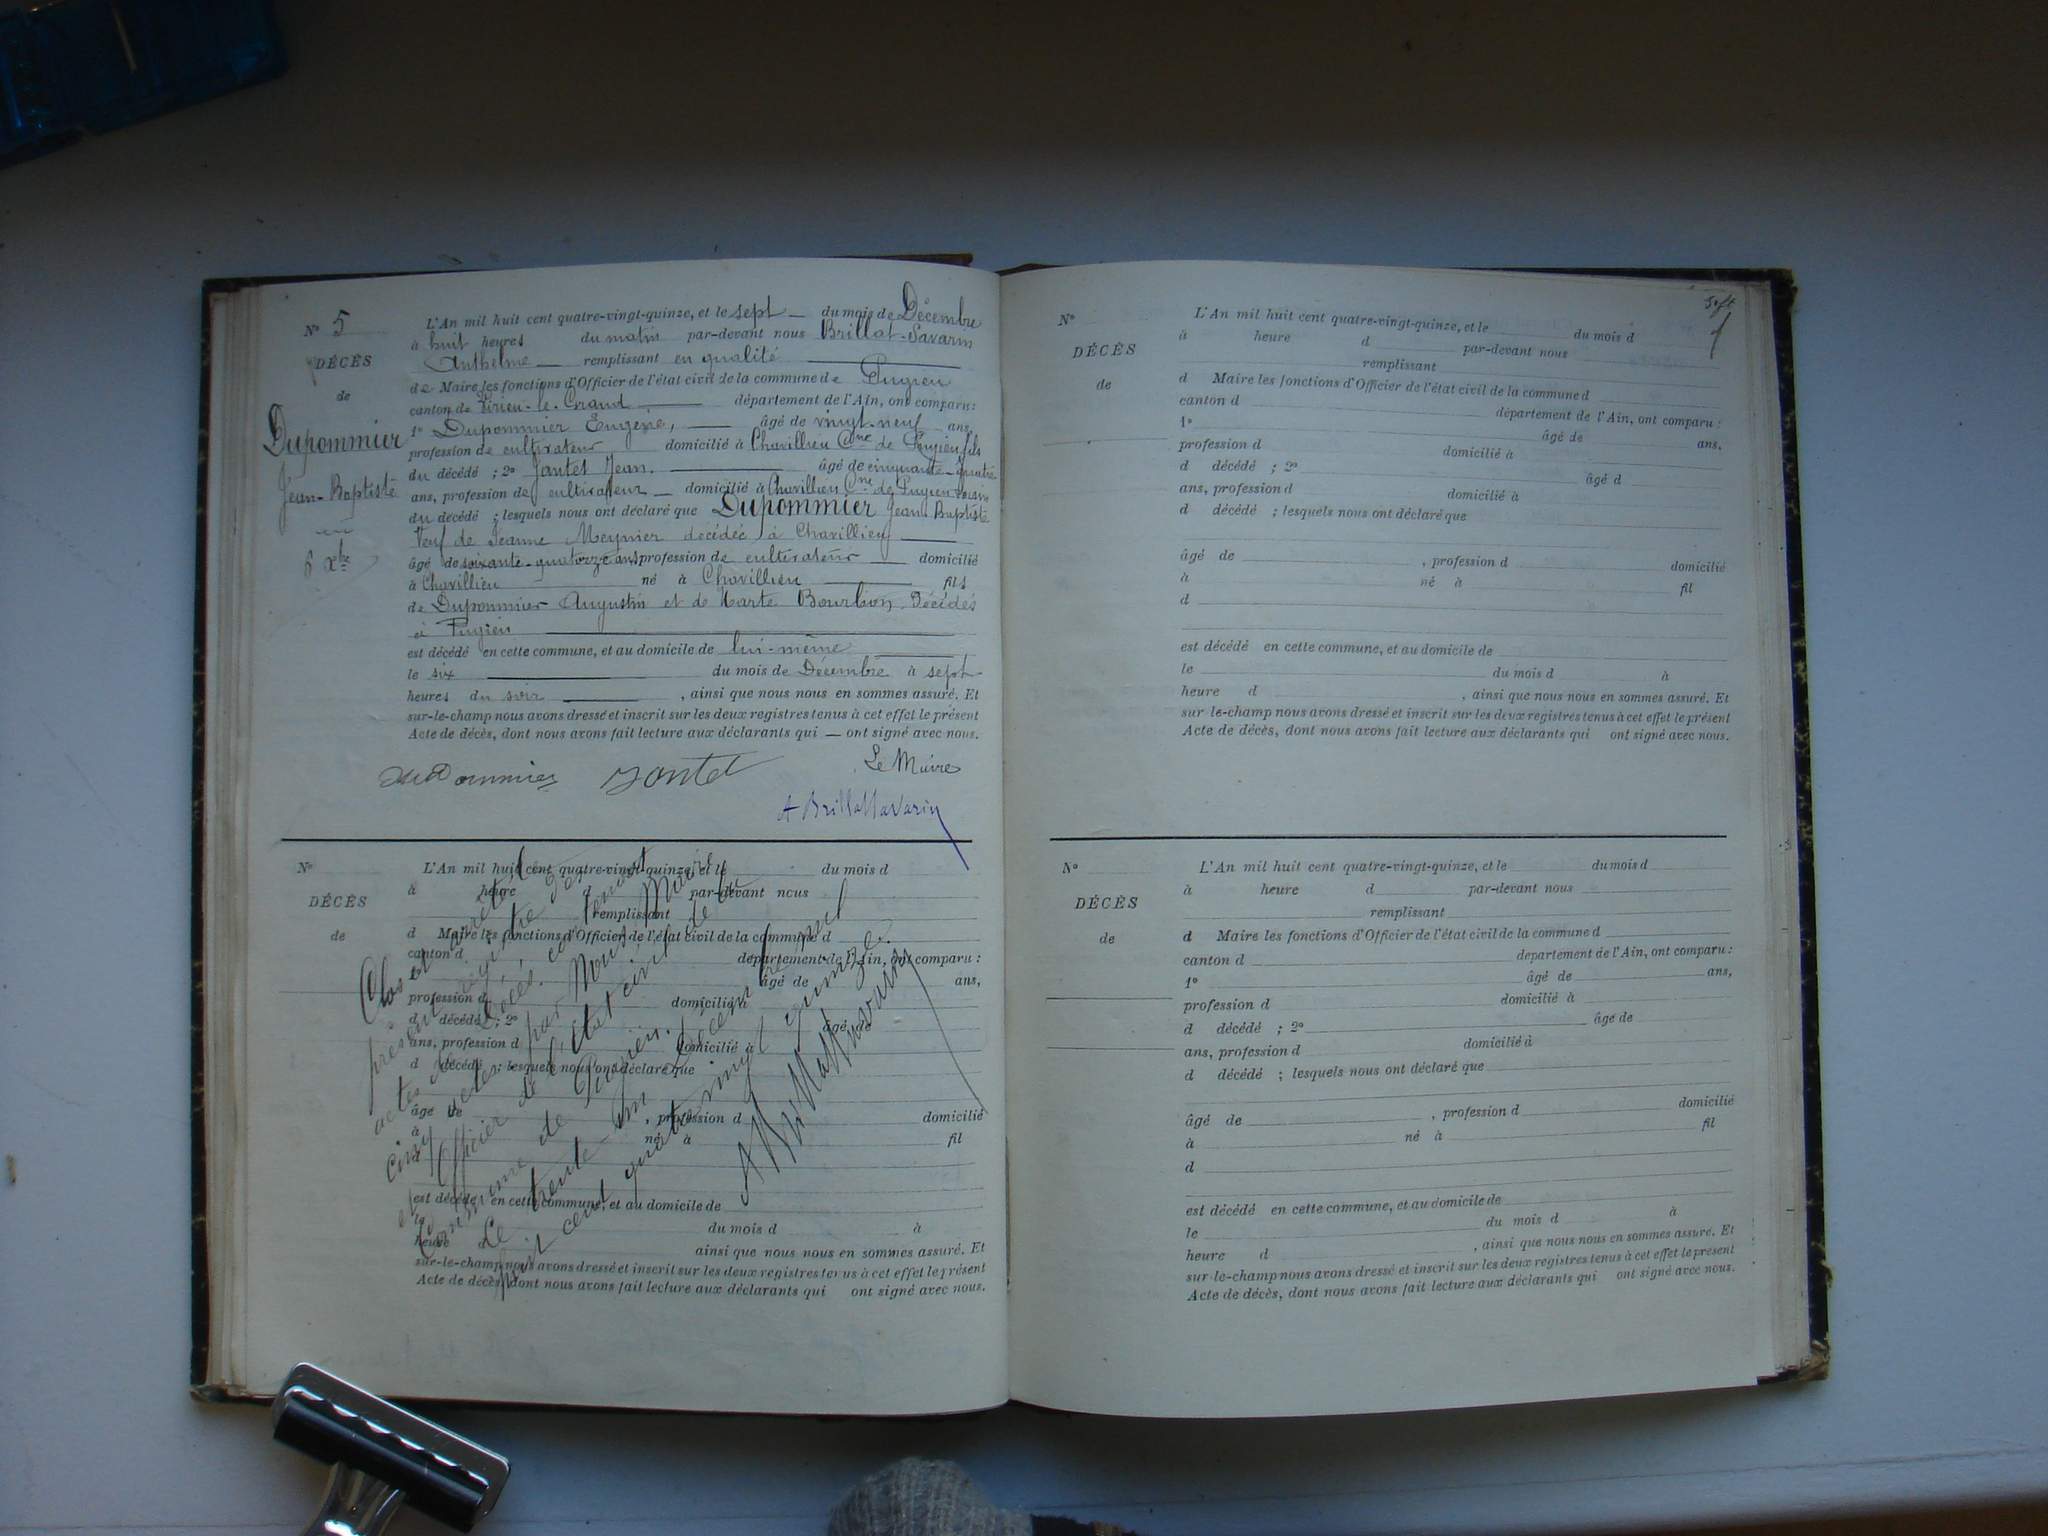 N° 5
DÉCÈS
de
Dupommier
Jean-Baptiste
6 Xbre
L'An mil huit cent quatre-vingt-quinze, et le sept du mois de Décembre
à huit heures du matin par-devant nous Brillat-Savarin
Anthelme remplissant en qualité
de Maire les fonctions d'Officier de l'état civil de la commune de Pugieu
canton de Virieu-le-Grand département de l'Ain, ont comparu :
1° Dupommier Eugène, âgé de vingt-neuf ans,
profession de cultivateur domicilié à Chavillieu Cne de Pugieu fils
du décédé ; 2° Jantet Jean. âgé de cinquante-quatre
ans, profession de cultivateur domicilié à Chavillieu Cne de Pugieu voisin
du décédé ; lesquels nous ont déclaré que Dupommier Jean Baptiste
Veuf de Jeanne Meynier décédée à Chavillieu
âgé de soixante-quatorze ans profession de cultivateur domicilié
à Chavillieu né à Chavillieu fils
de Dupommier Augustin et de Marte Bourbon. Décédés
à Pugieu
est décédé en cette commune, et au domicile de lui-même
le six du mois de Décembre à sept
heures du soir , ainsi que nous nous en sommes assuré. Et
sur-le-champ nous avons dressé et inscrit sur les deux registres tenus à cet effet le présent
Acte de décès, dont nous avons fait lecture aux déclarants qui — ont signé avec nous.
duPommier Jantet Le Maire
A Brillat Savarin
N°
DÉCÈS
de
L'An mil huit cent quatre-vingt-quinze, et le du mois d
à heure d par-devant nous
remplissant
d Maire les fonctions d'Officier de l'état civil de la commune d
canton d département de l'Ain, ont comparu :
1° âgé de ans,
profession d domicilié à
d décédé ; 2° âgé de
ans, profession d domicilié à
d décédé ; lesquels nous ont déclaré que
âgé de , profession d domicilié
à né à fil
d
est décédé en cette commune, et au domicile de
le du mois d à
heure ainsi que nous nous en sommes assuré. Et
sur-le-champ nous avons dressé et inscrit sur les deux registres tenus à cet effet le présent
Acte de décès, dont nous avons fait lecture aux déclarants qui ont signé avec nous.
Clos et arrêté le
présent registre des
actes de décès, contenant
cinq actes, par Nous, Maire
et Officier de l'état civil de la
Commune de Pugieu.
Le trente-un Décembre mil
huit cent quatre vingt quinze.
A Brillat Savarin
N°
DÉCÈS
de
L'An mil huit cent quatre-vingt-quinze, et le du mois d
à heure d par-devant nous
remplissant
d Maire les fonctions d'Officier de l'état civil de la commune d
canton d département de l'Ain, ont comparu :
1° âgé de ans,
profession d domicilié à
d décédé ; 2° âgé d
ans, profession d domicilié à
d décédé ; lesquels nous ont déclaré que
âgé de , profession d domicilié
à né à fil
d
est décédé en cette commune, et au domicile de
le du mois d à
heure d , ainsi que nous nous en sommes assuré. Et
sur le-champ nous avons dressé et inscrit sur les deux registres tenus à cet effet le présent
Acte de décès, dont nous avons fait lecture aux déclarants qui ont signé avec nous.
N°
DÉCÈS
de
L'An mil huit cent quatre-vingt-quinze, et le du mois d
à heure d par-devant nous
remplissant
d Maire les fonctions d'Officier de l'état civil de la commune d
canton d département de l'Ain, ont comparu :
1° âgé de ans,
profession d domicilié à
d décédé ; 2° âge de
ans, profession d domicilié à
d décédé ; lesquels nous ont déclaré que
âgé de , profession d domicilié
à né à fil
d
est décédé en cette commune, et au domicile de
le du mois d à
heure d , ainsi que nous nous en sommes assuré. Et
sur-le-champ nous avons dressé et inscrit sur les deux registres tenus à cet effet le présent
Acte de décès, dont nous avons fait lecture aux déclarants qui ont signé avec nous.